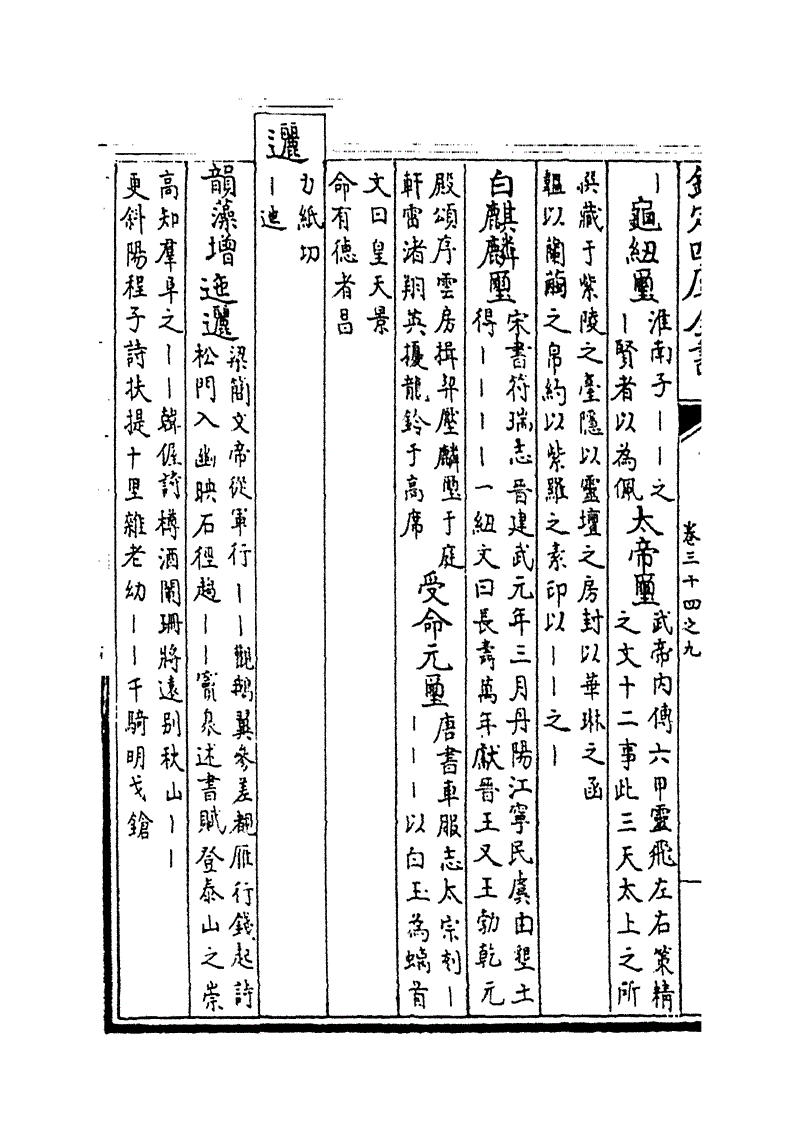 欽定四庫全書
卷三十四之九
｜龜紐璽
淮南子｜｜之
｜賢者以為佩
太帝璽
武帝内傳六甲靈飛左右策精
之文十二事此三天太上之所
撰藏于紫陵之臺隱以靈壇之房封以華琳之函
韞以蘭繭之帛約以紫羅之素印以｜｜之｜
白麒麟璽
宋書符瑞志晉建武元年三月丹陽江寧民虞由墾土
得｜｜｜｜一紐文曰長壽萬年獻晉王又王勃乾元
殿頌序雲房揖羿壓麟璽于庭
軒雷渚翔英擾龍鈐于高席
受命元璽
唐書車服志太宗刻｜
｜｜｜以白玉為螭首
文曰皇天景
命有德者昌
邐
力紙切
｜迤
韻藻增
迤邐
梁簡文帝從軍行｜｜觀鵝翼參差覩雁行錢起詩
松門入幽映石徑趨｜｜竇泉述書賦登泰山之崇
高知羣阜之｜｜韓偓詩樽酒闌珊將遠別秋山｜｜
更斜陽程子詩扶提十里雜老幼｜｜千騎明戈鎗